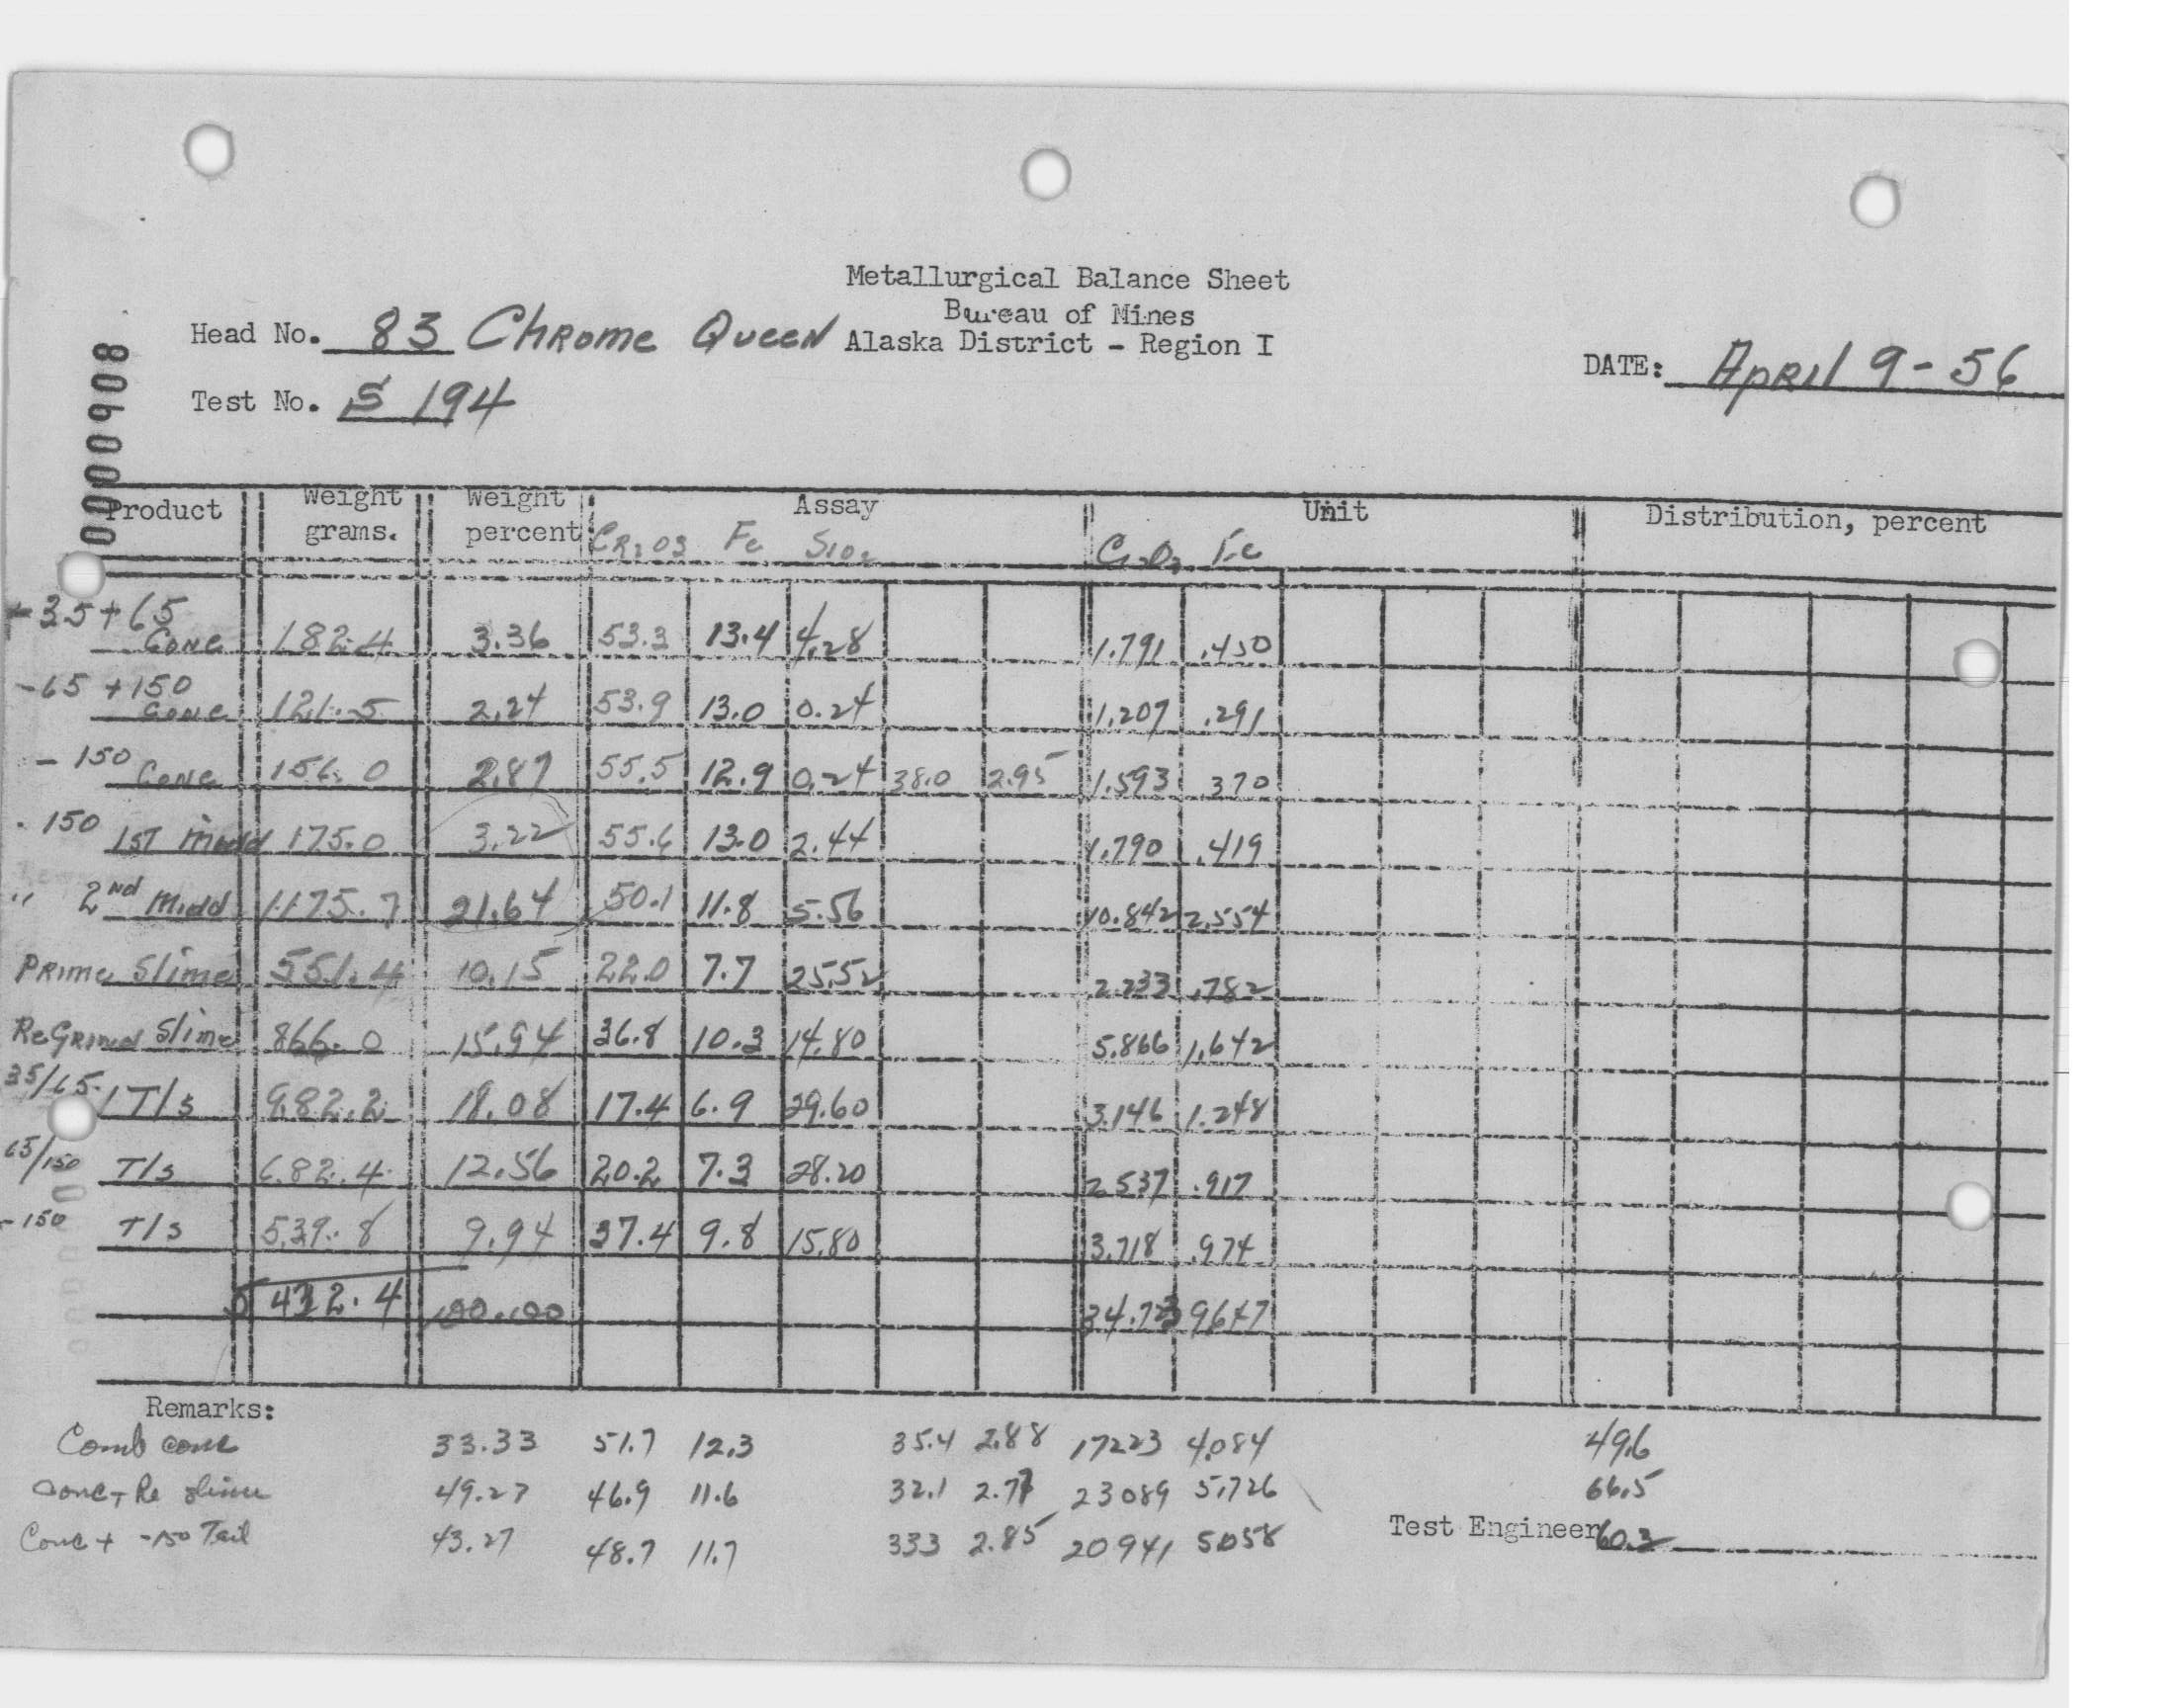 Metallurgical Balance Sheet
Bureau of Mines
Alaska District - Region I
Head No. 83 Chrome Queen
Test No. S 194
DATE: April 9-56
0000908
Product Weight grams. Weight percent Assay Unit Distribution, percent
CR2O3 Fe SiO2 Cr2O3 Fe
-35+65 Conc 182.4 3.36 53.3 13.4 4.28 1.791 .450
-65 +150 Conc 121.5 2.24 53.9 13.0 0.24 1.207 .291
-150 Conc 156.0 2.87 55.5 12.9 0.24 38.0 2.95 1.593 .370
-150 1ST Midd 175.0 3.22 55.6 13.0 2.44 1.790 .419
" 2nd Midd 1175.7 21.64 50.1 11.8 5.56 10.842 2.554
Prime Slime 551.4 10.15 22.0 7.7 25.52 2.233 .782
ReGrind Slime 866.0 15.94 36.8 10.3 14.80 5.866 1.642
35/65 T/s 982.2 18.08 17.4 6.9 29.60 3.146 1.248
65/150 T/s 682.4 12.56 20.2 7.3 28.20 2.537 .917
-150 T/s 539.8 9.94 37.4 9.8 15.80 3.718 .974
5432.4 100.00 34.723 9647
Remarks:
Comb conc 33.33 51.7 12.3 35.4 2.88 17223 4.084 49.6
Conc + Re slime 49.27 46.9 11.6 32.1 2.77 23089 5.726 66.5
Conc + -150 Tail 43.27 48.7 11.7 333 2.85 20941 5058 60.3
Test Engineer